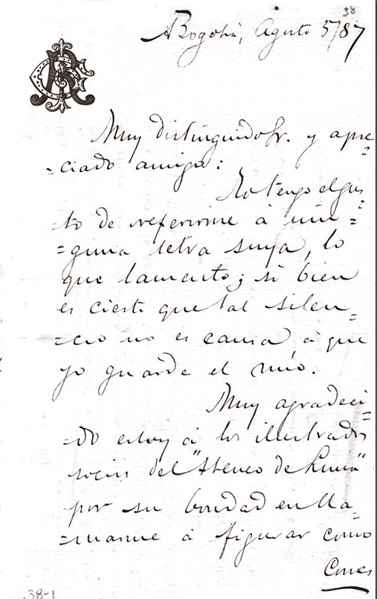 38
Bogotá, Agosto 5/87
Muy distinguido Sr. y apre-
=ciado amigo:
No tengo el gus-
=to de referirme á nin-
=guna letra suya, lo
que lamento; si bien
es cierto que tal silen-
=cio no es causa á que
yo guarde el mío.
Muy agradeci-
=do estoy á los ilustrados
socios del "Ateneo de Lima"
por su bondad en lla-
=marme á figurar como
Corres
38-1